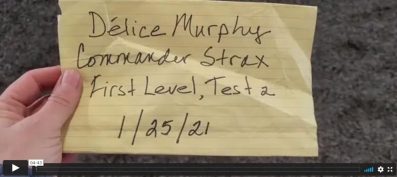 Délice Murphy
Commander Strax
First Level, Test 2
1/25/21
04:43